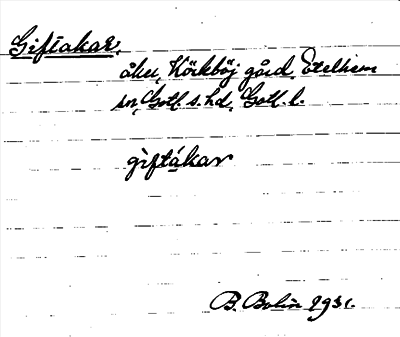 Giftakar,
åker, Körkböj gård, Etelhem
sn, Gotl. s. hd, Gotl. l.
giftákar
B. Bolin 1931.